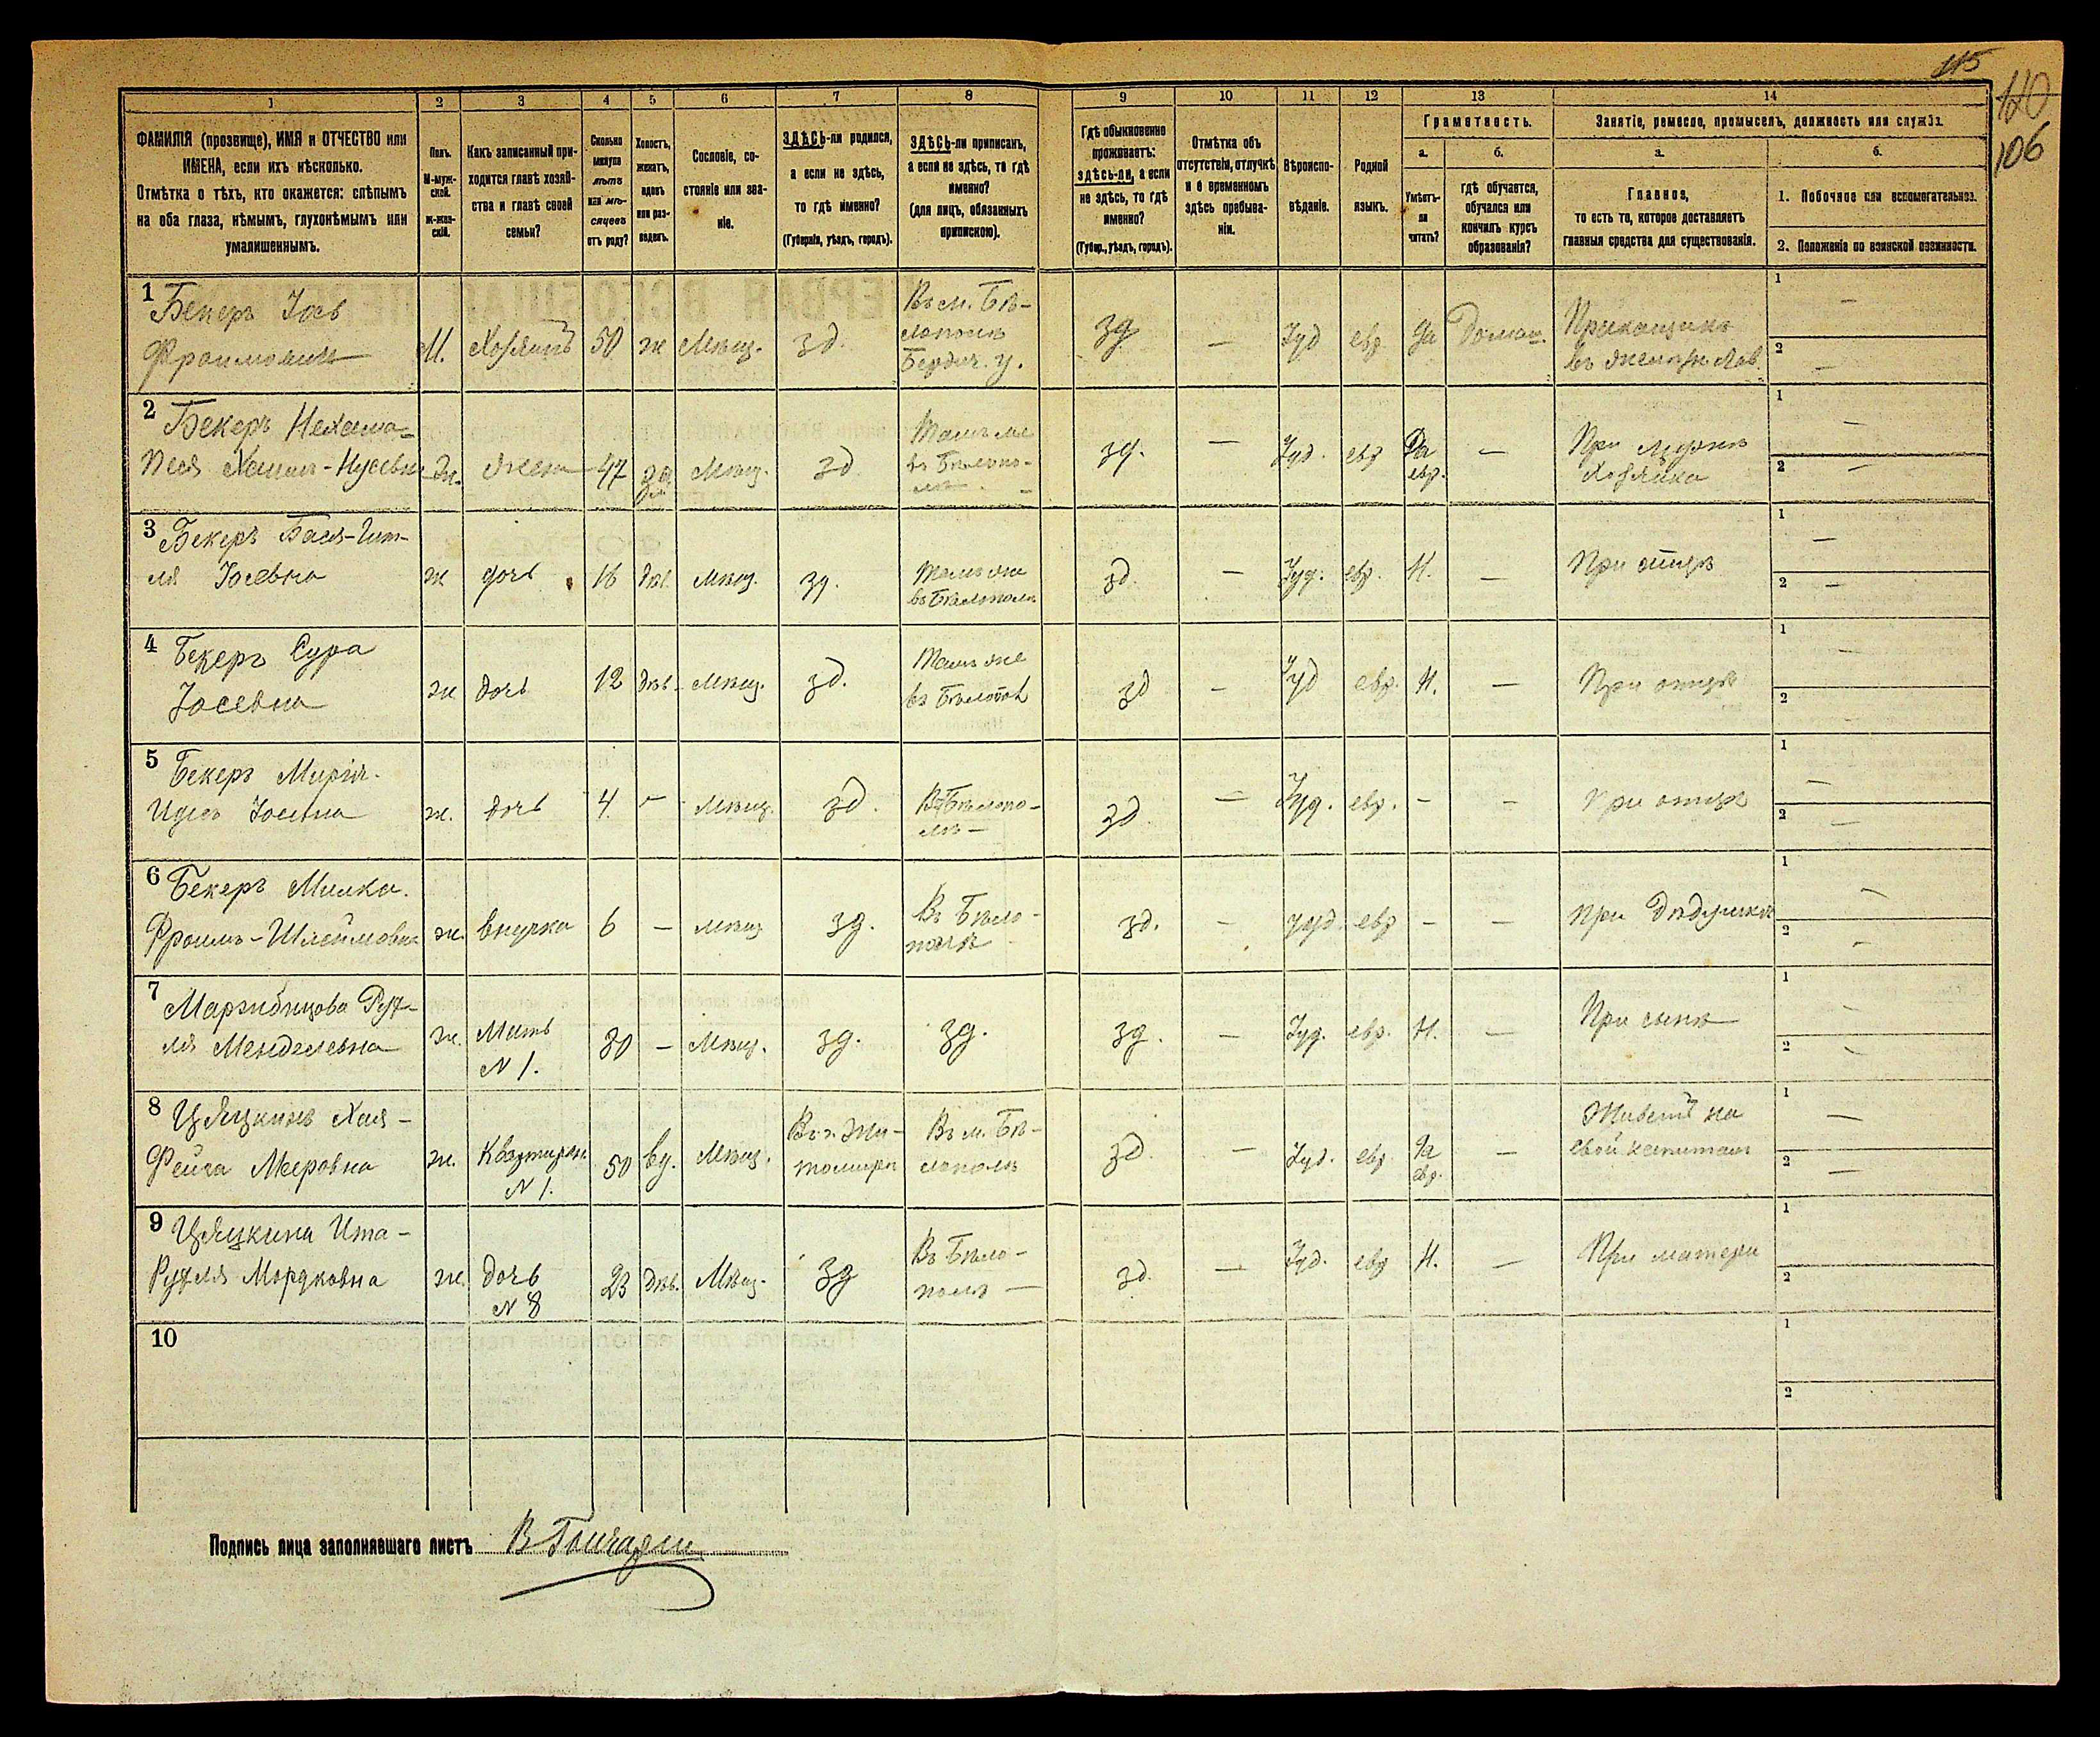 115
120
106
1 2 3 4 5 6 7 8 9 10 11 12 13 14
ФАМИЛІЯ (прозвище), ИМЯ и ОТЧЕСТВО или
ИМЕНА, если ихъ нѣсколько.
Отмѣтка о тѣхъ, кто окажется: слѣпымъ
на оба глаза, нѣмымъ, глухонѣмымъ или
умалишеннымъ.
Полъ.
М-муж-
ской.
ж-жен-
скій.
Какъ записанный при-
ходится главѣ хозяй-
ства и главѣ своей
семьи?
Сколько
минуло
лѣтъ
или мѣ-
сяцевъ
отъ роду?
Холостъ,
женатъ,
вдовъ
или раз-
веденъ.
Сословіе, со-
стояніе или зва-
ніе.
ЗДѢСЬ-ли родился,
а если не здѣсь,
то гдѣ именно?
(Губернія, уѣздъ, городъ).
ЗДѢСЬ-ли приписанъ,
а если не здѣсь, то гдѣ
именно?
(для лицъ, обязанныхъ
припискою).
Гдѣ обыкновенно
проживаетъ:
здѣсь-ли, а если
не здѣсь, то гдѣ
именно?
(Губер., уѣздъ, городъ).
Отмѣтка объ
отсутствіи, отлучкѣ
и о временномъ
здѣсь пребыва-
ніи.
Вѣроиспо-
вѣданіе.
Родной
языкъ.
Грамотность.
а.
Умѣетъ-
ли
читать?
б.
гдѣ обучается,
обучался или
кончилъ курсъ
образованія?
Занятіе, ремесло, промыселъ, должность или служба.
а.
Главное,
то есть то, которое доставляетъ
главныя средства для существованія.
б.
1. Побочное или вспомогательное.
2. Положеніе по воинской повинности.
1 Бекеръ Іось
Фроимовичъ
М. Хозяинъ 50 ж Мѣщ. зд.
Въ м. Бѣ-
лополѣ
Бердич. у.
зд — Іуд евр Да Домаш.
Прикащикъ
въ желѣзн. лав.
1 —
2 —
2 Бекеръ Нехама-
Песя Хаимъ-Нусевна
Ж. жена 47 за Мѣщ. зд
Тамъ же
въ Бѣлопо-
лѣ —
зд. — Іуд. евр Да
евр. —
При мужѣ
хозяйка
1 —
2 —
3 Бекеръ Бася-Гит-
ля Іосевна
ж дочь 16 дѣв. мѣщ. зд.
Тамъ же
въ Бѣлополѣ
зд. — Іуд. евр. Н. — При отцѣ
1 —
2 —
4 Бекеръ Сура
Іосевна
ж дочь 12 дѣв. Мѣщ. зд.
Тамъ же
въ Бѣлопол
зд — Іуд евр. Н. — При отцѣ
1 —
2
5 Бекеръ
Идесъ Іосевна
ж. дочь 4. — Мѣщ. зд.
Въ Бѣлопо-
лѣ —
зд. — Іуд. евр. — — при отцѣ
1 —
2 —
6 Бекеръ Милка.
Фроимъ-Шлёймовна
ж. внучка 6 — мѣщ зд.
Въ Бѣло-
полѣ
зд. — іуд евр — — при дѣдушкѣ
1 —
2 —
7
ля Менделевна
ж. Мать
N 1.
80 — Мѣщ. зд. зд. зд. — Іуд. евр. Н. — При сынѣ
1 —
2 —
8 Хая-
Фейга Мееровна
ж. Квартиран.
N 1.
50 вд. Мѣщ.
Въ г. Жи-
томирѣ
Въ м. Бѣ-
лополѣ
зд. — Іуд. евр Да
евр. —
Живетъ на
свой капиталъ
1 —
2 —
9 Ита-
Рухля Мордковна
ж. дочь
N 8
23 дѣв. Мѣщ. зд
Въ Бѣло-
полѣ —
зд. — Іуд. евр Н. — При матери
1
2
10
1
2
Подпись лица заполнявшаго листъ